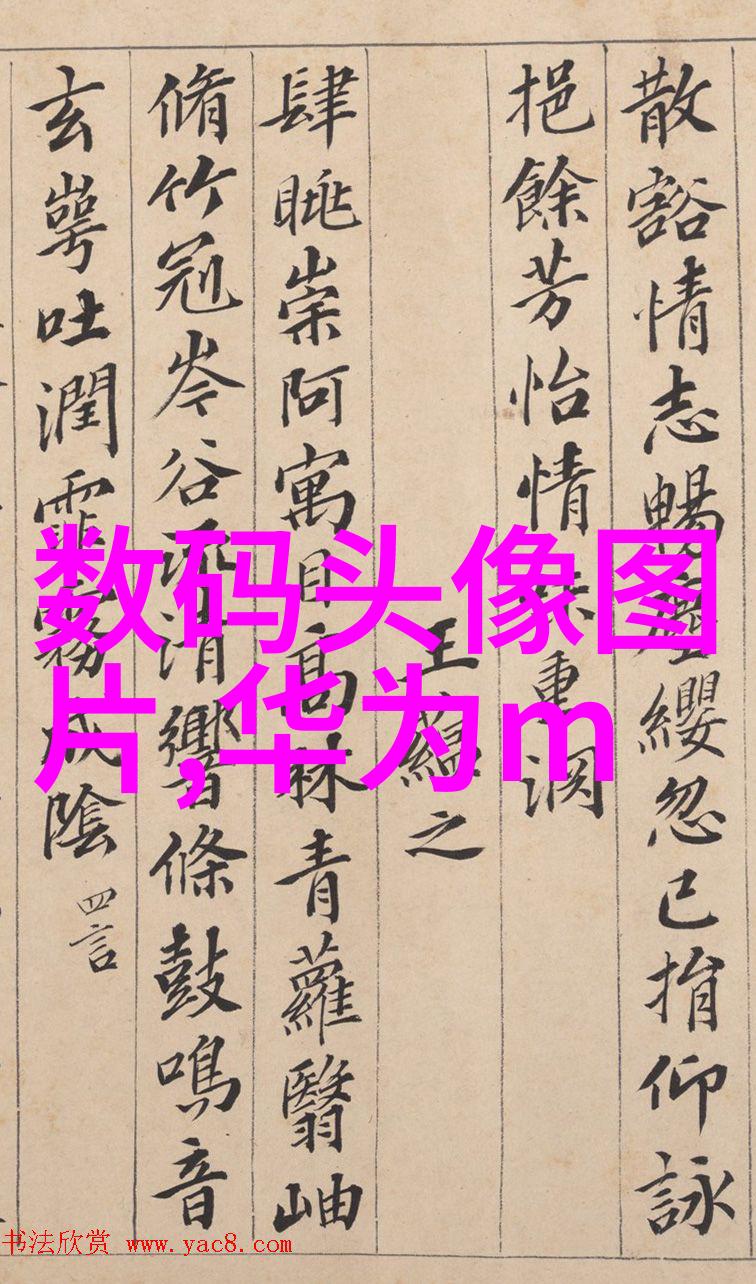 散豁情志暢塵纓忽已捐仰詠
挹餘芳怡情味重淵
王蘊之
肆眺崇阿寓目高林青蘿翳岫
脩竹冠岑谷流清響條鼓鳴音
玄崿吐潤霏霧成陰 四言
数码头像图
片,华为m
书法欣赏 www.yac8.com